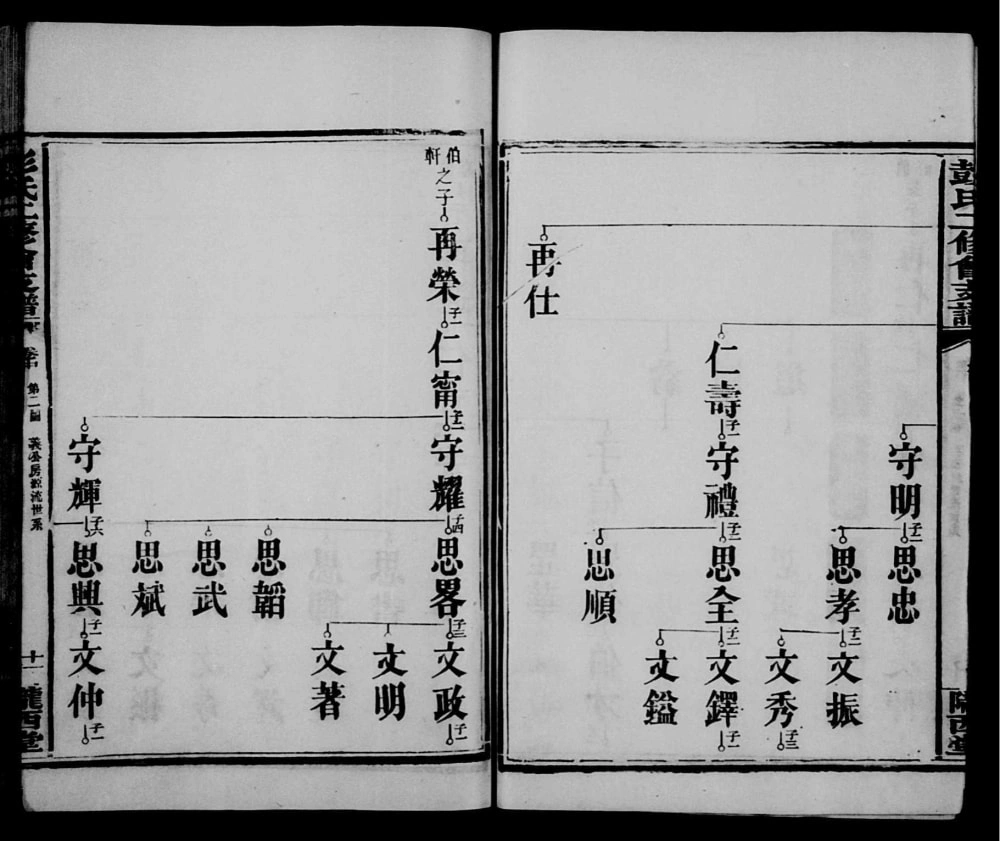 彭氏二修會支譜 隴西堂
守明 子二 思忠
思孝 子二 文振
文秀 子三
仁壽 子一 守禮 子二 思全 子二 文鐸 子一
文鎰
思順
再仕
伯軒之子 再榮 子一 仁甯 子二 守耀 子四 思畧 子三 文政 子一
文明
文著
思韜
思武
思斌
守輝 子六 思興 子一 文仲 子一
彭氏二修會支譜 第二圖 義公房源流世系 十一 隴西堂